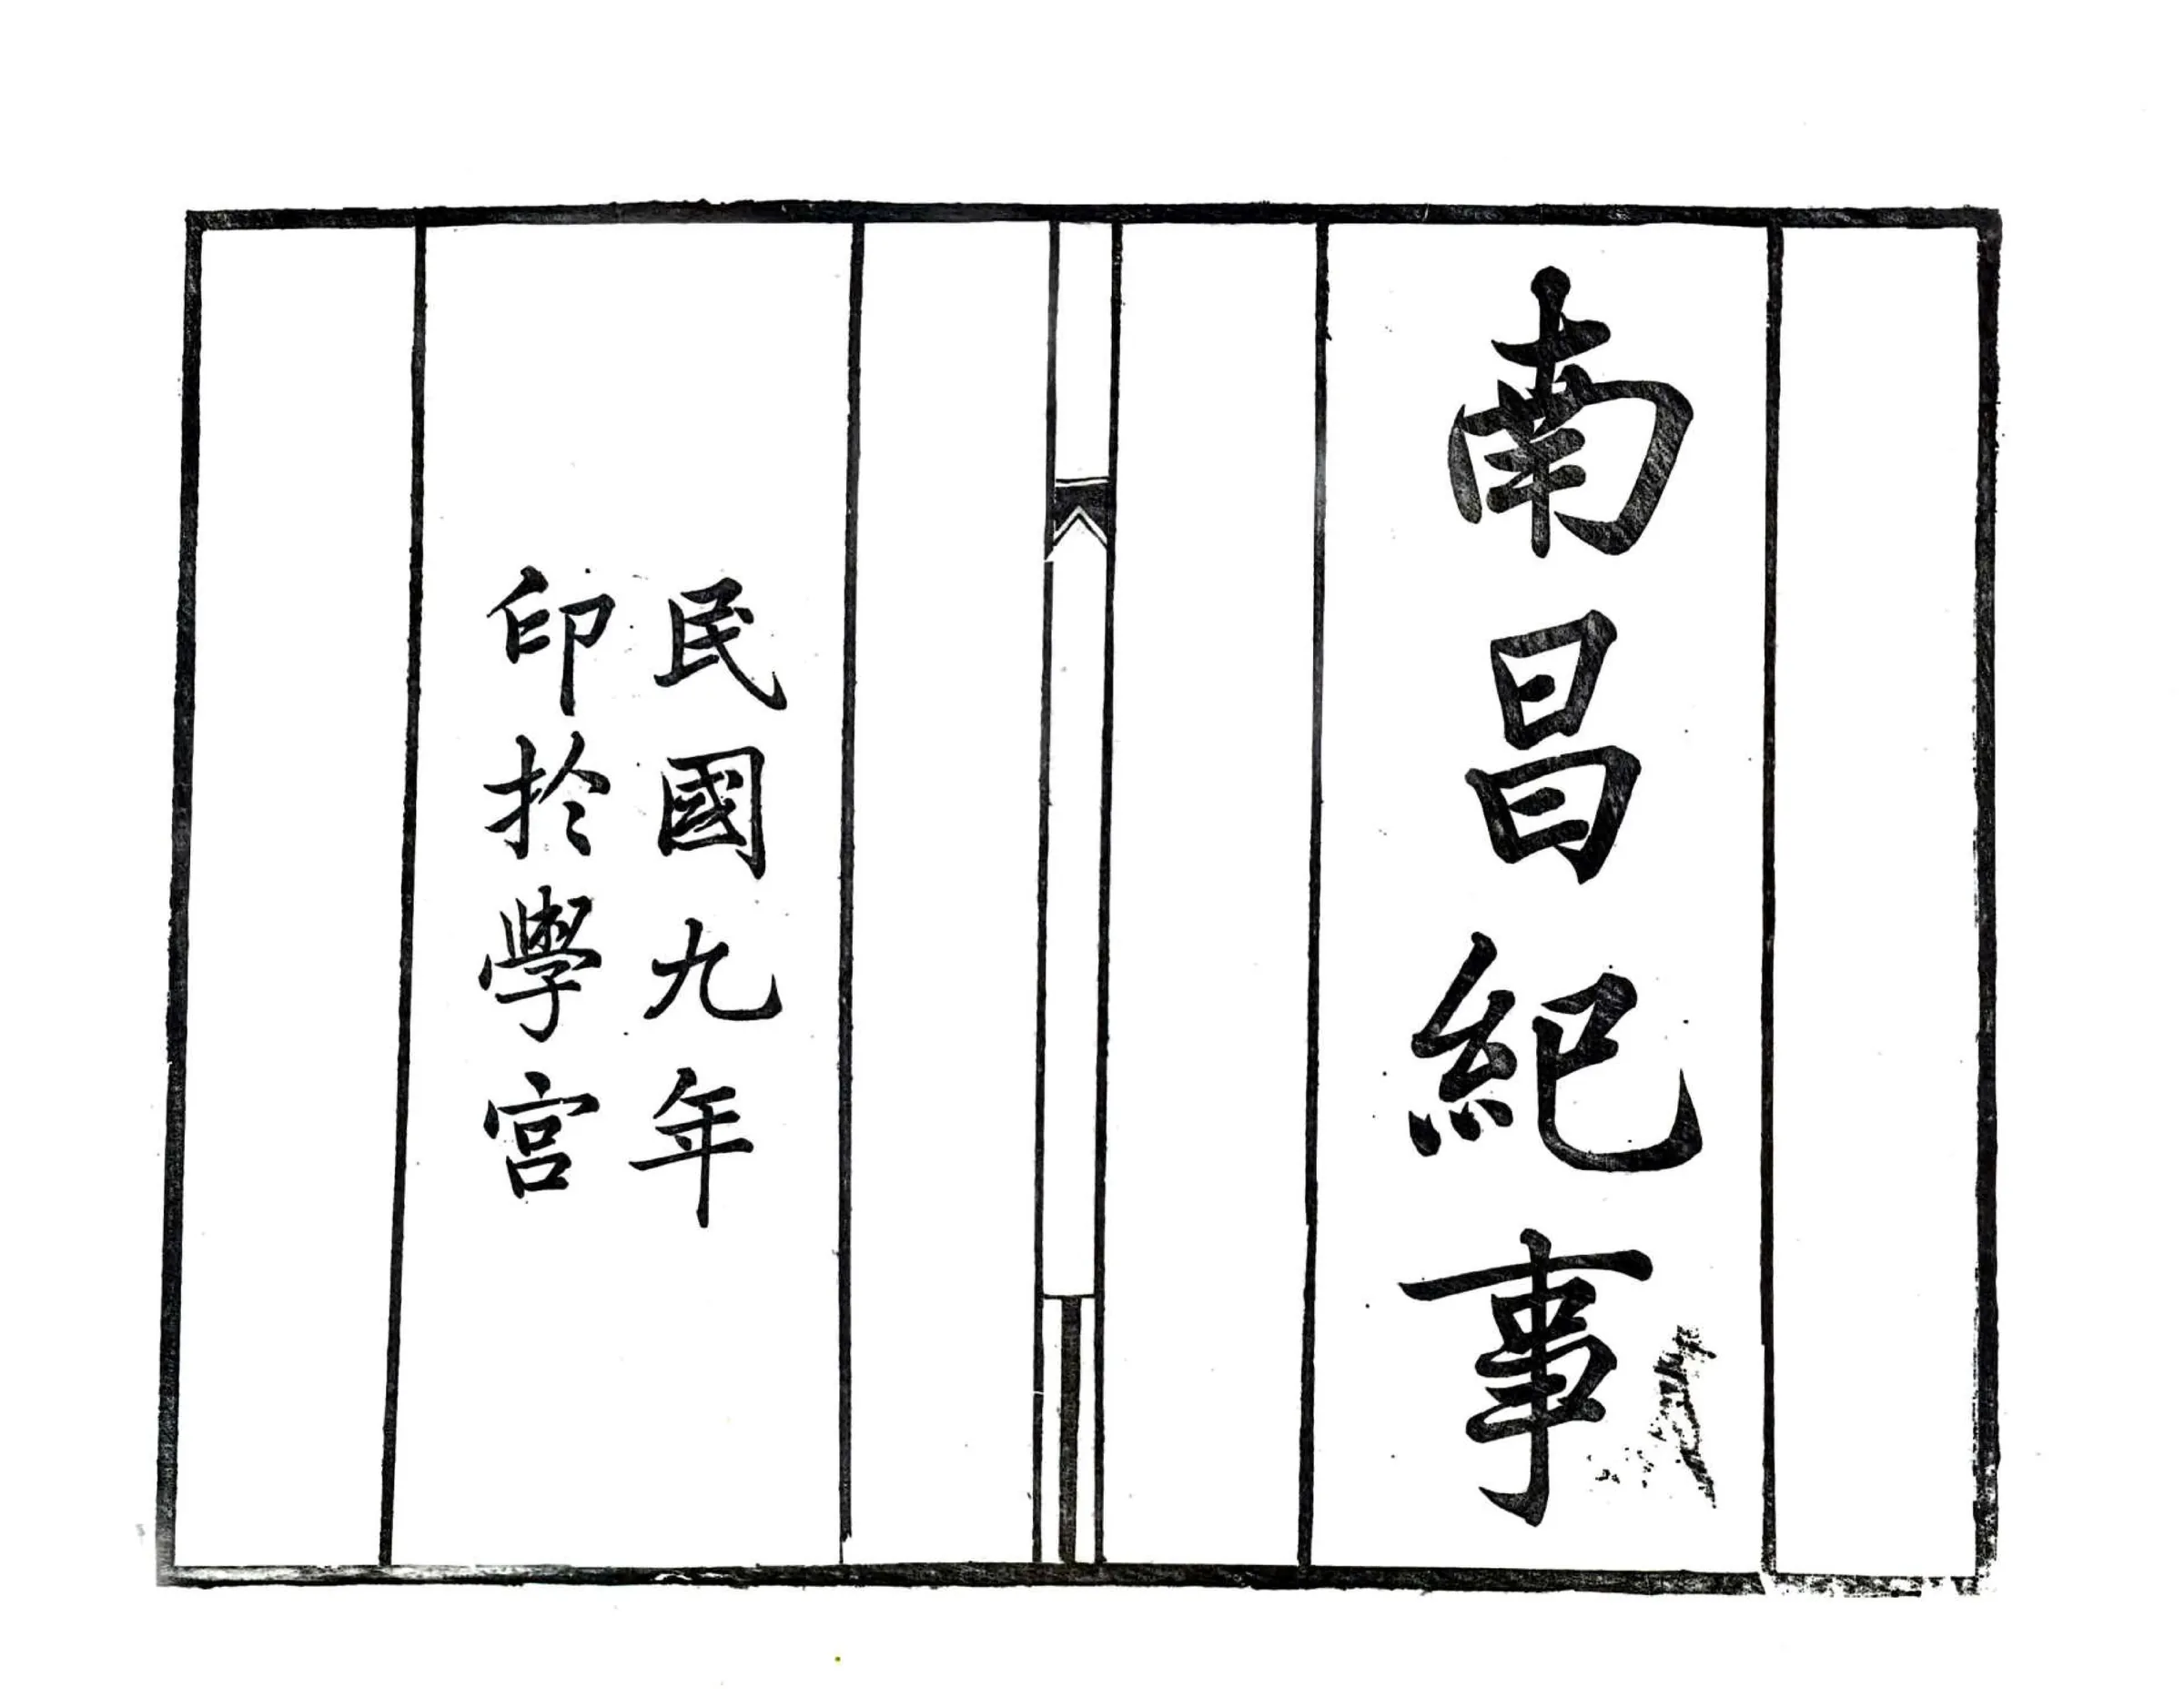 南昌紀事
民國九年
印於學宮